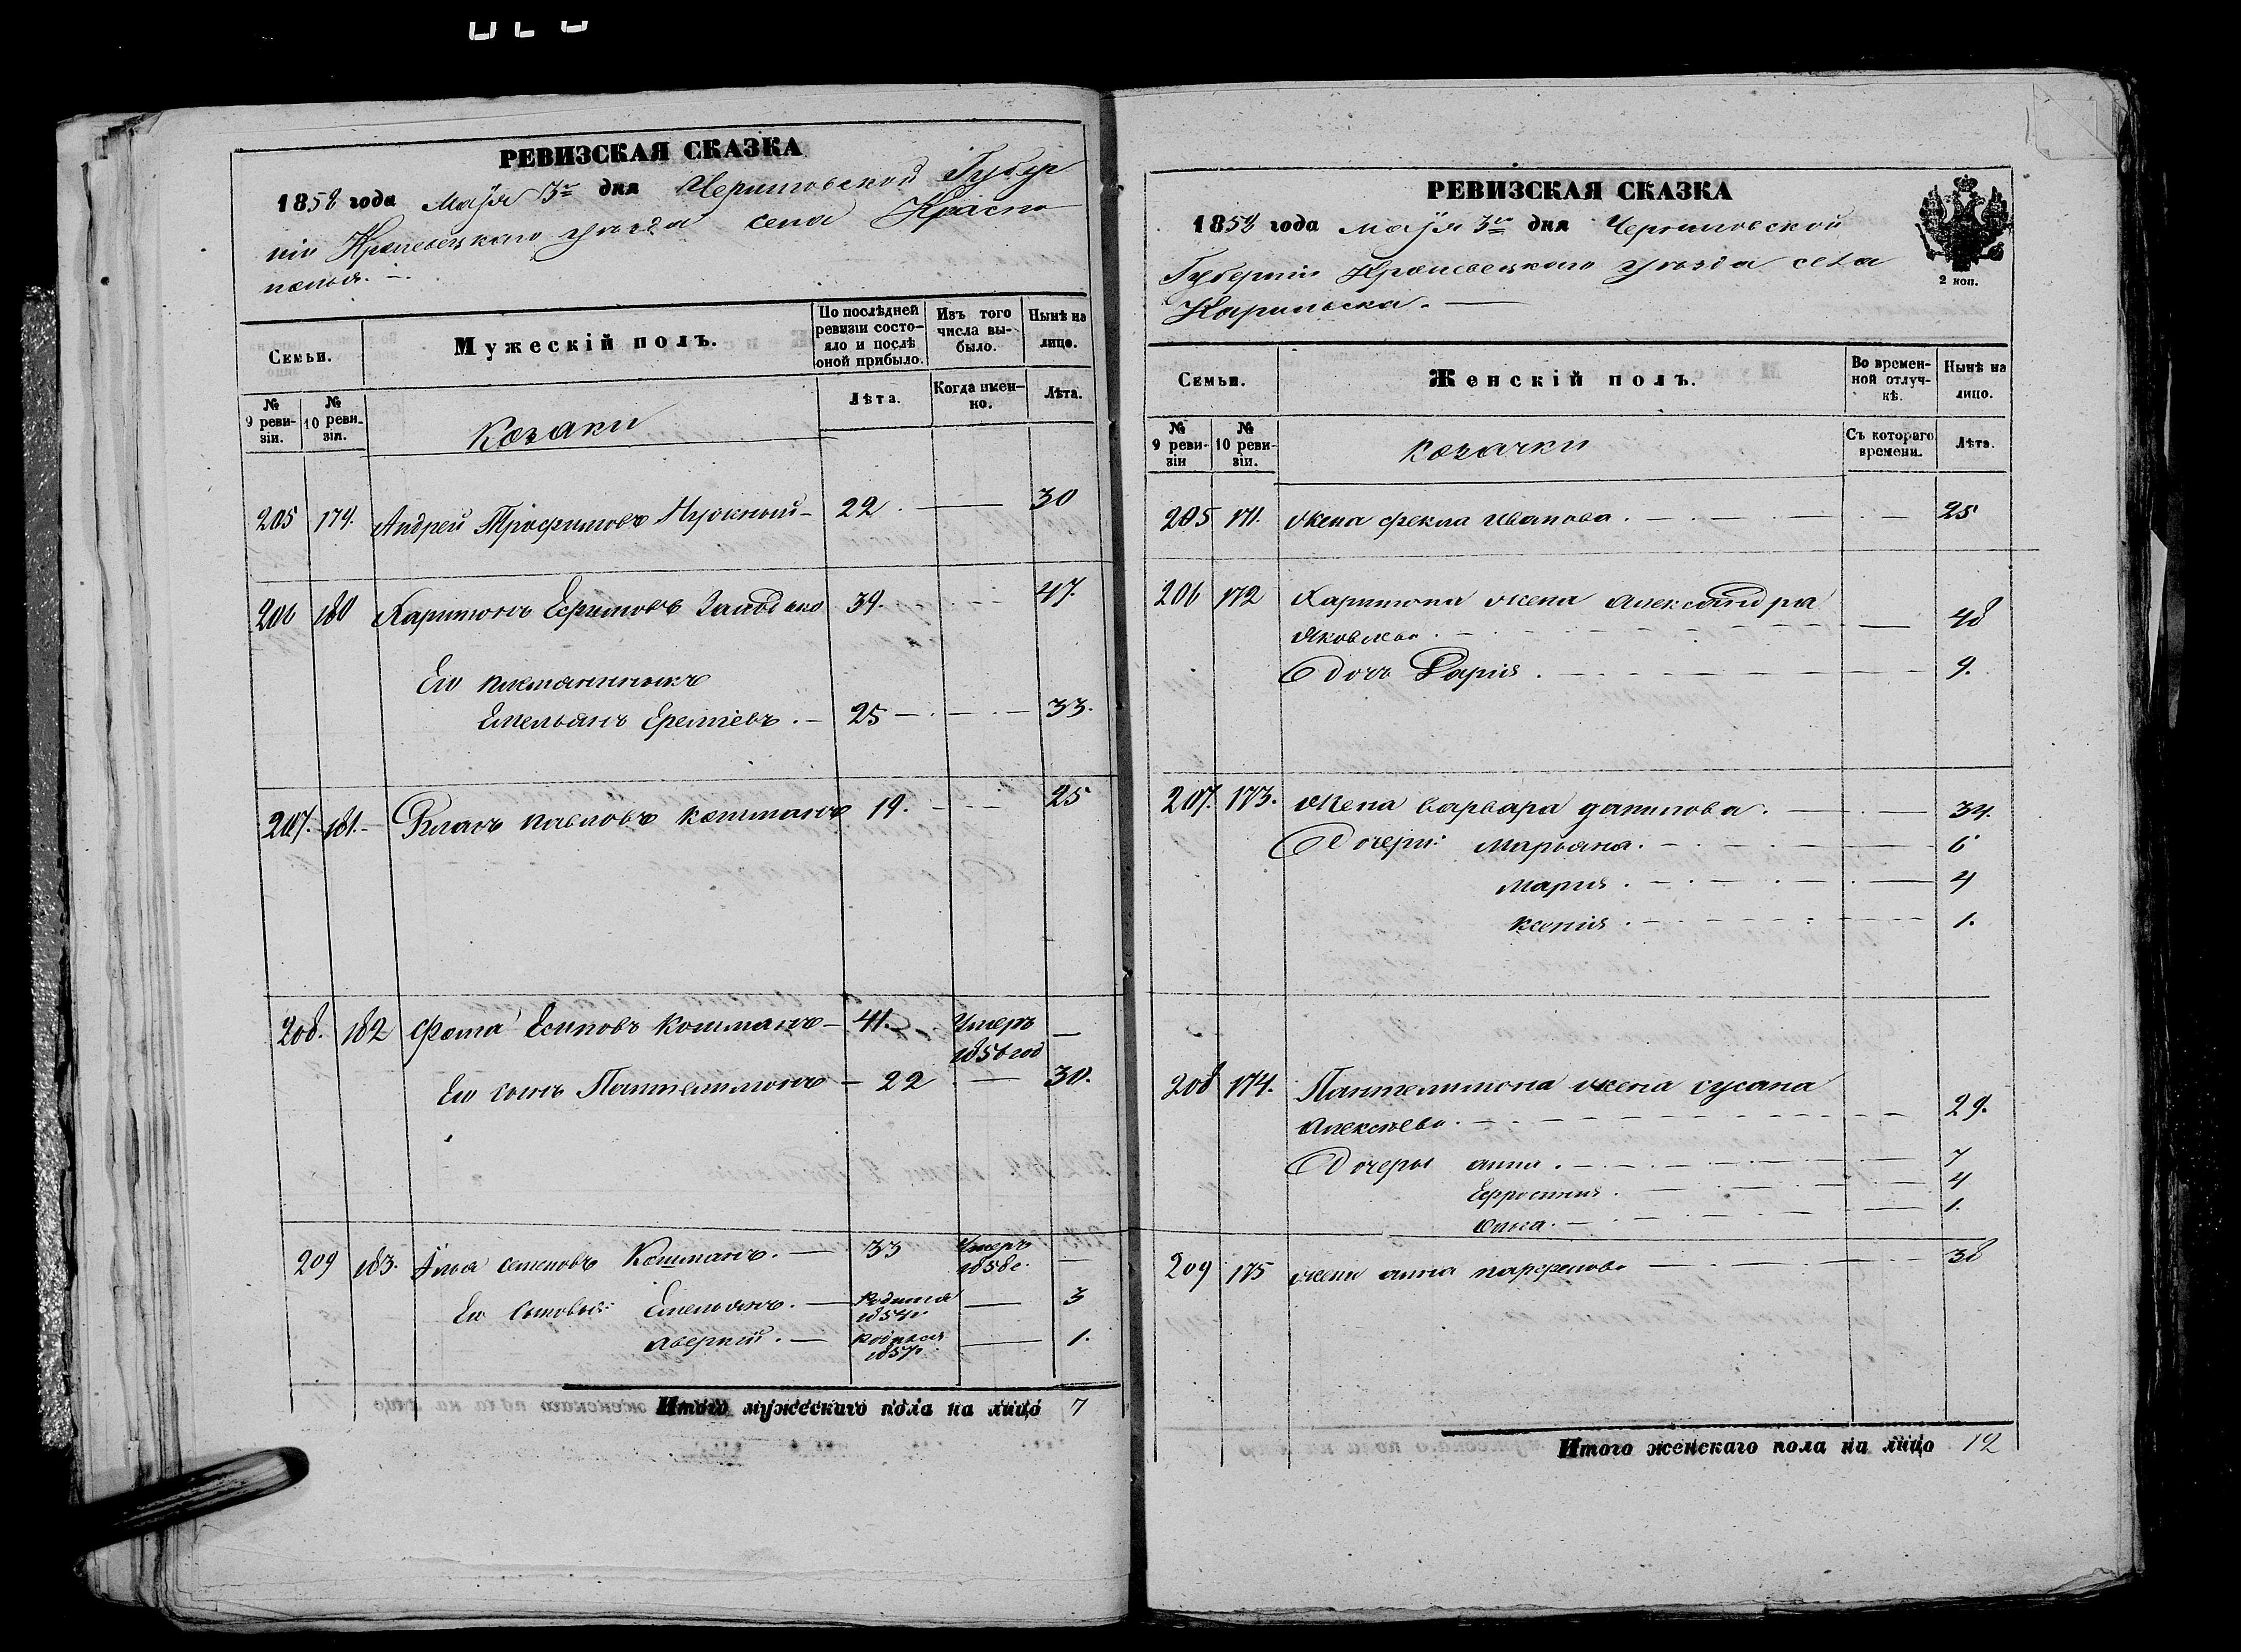 РЕВИЗСКАЯ СКАЗКА
1858 года Маїя 3го дня Черниговской Губер
ніи Кролевецкаго уѣзда села Красно
полья.
Семьи.
Мужескій полъ.
По послѣдней ревизіи состояло и послѣ оной прибыло.
Изъ того числа выбыло.
Нынѣ на лицо.
№ 9 ревизіи.
№ 10 ревизіи.
Козаки
Лѣта.
Когда именно.
Лѣта.
205 179. Андрей Трофимовъ 22. — 30
206 180 Харитонъ Ефимовъ 39. — 47.
Его племянникъ
Емельянъ Еремѣевъ. — 25 — 33.
207. 181. Власъ Павловъ Кошманъ 19. — 25
208. 182 Фома Есиповъ Кошманъ — 41. Умеръ —
1856 год
Его сынъ Пантелимонъ — 22 — 30.
209 183. Илья Семеновъ Кошманъ. — 33 Умеръ —
1858 г.
Его Сыновья: Емельянъ. — Родился — 3
1854г
Аверкій. — Родился — 1.
1857г
Итого мужескаго пола на лицо 7
РЕВИЗСКАЯ СКАЗКА
1858 года маїя 3го дня Черниговской
Губерніи Кролевецкаго уѣзда села
Карильска. —
2 коп.
Семьи.
Женскій полъ.
Во временной отлучкѣ.
Нынѣ на лицо.
№ 9 ревизіи
№ 10 ревизіи.
козачки
Съ котораго времени.
Лѣта.
205 171. Жена Фекла Иванова. — 25
206 172 Харитона жена Александра
Яковлева. — 48
Дочь Дарія. — 9.
207. 173. Жена Варвара Данилова. — 34.
Дочери: Марьяна. — 6
Мария. — 4
Ксенія. — 1.
208 174. Пантелимона жена Сусана
Алексѣева. — 29.
Дочеры Анна. — 7
Ефросинія. — 4
Ольга. — 1.
209 175 Жена Анна Парфенова — 38
Итого женскаго пола на лицо 12